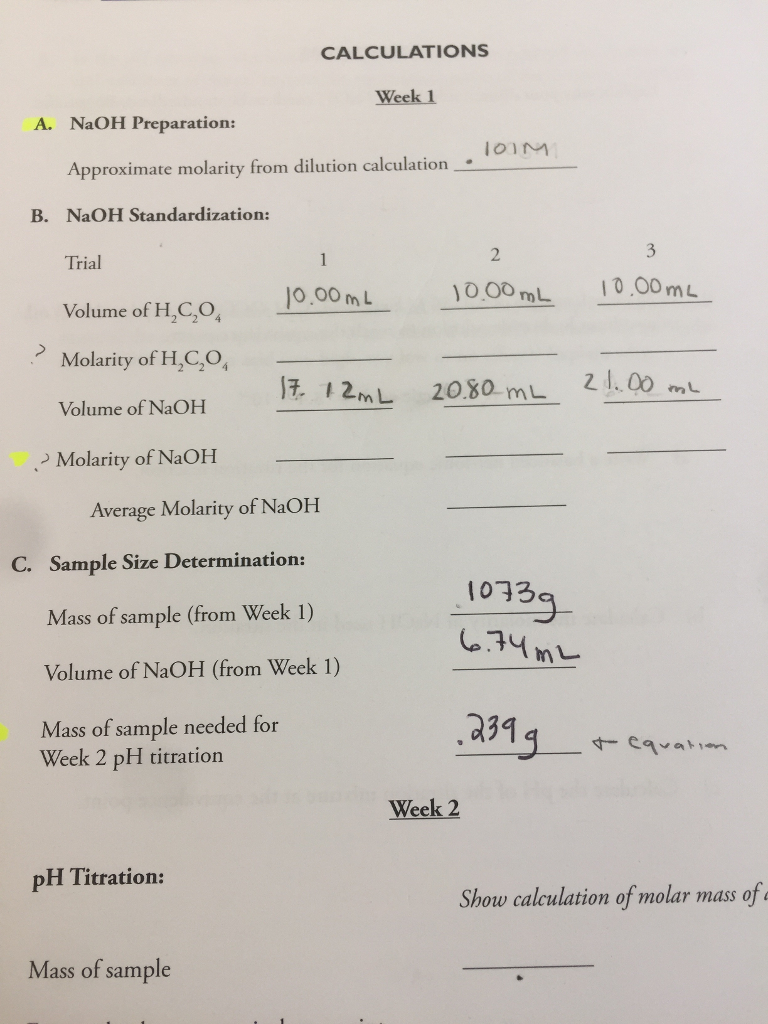 CALCULATIONS
Week 1
A. NaOH Preparation:
Approximate molarity from dilution calculation .101M
B. NaOH Standardization:
Trial 1 2 3
Volume of H₂C₂O₄ 10.00mL 10.00mL 10.00mL
? Molarity of H₂C₂O₄
Volume of NaOH 17.12mL 20.80 mL 21.00 mL
? Molarity of NaOH
Average Molarity of NaOH
C. Sample Size Determination:
Mass of sample (from Week 1) .1073g
Volume of NaOH (from Week 1) 6.74mL
Mass of sample needed for
Week 2 pH titration .239g + equation
Week 2
pH Titration:
Show calculation of molar mass of
Mass of sample